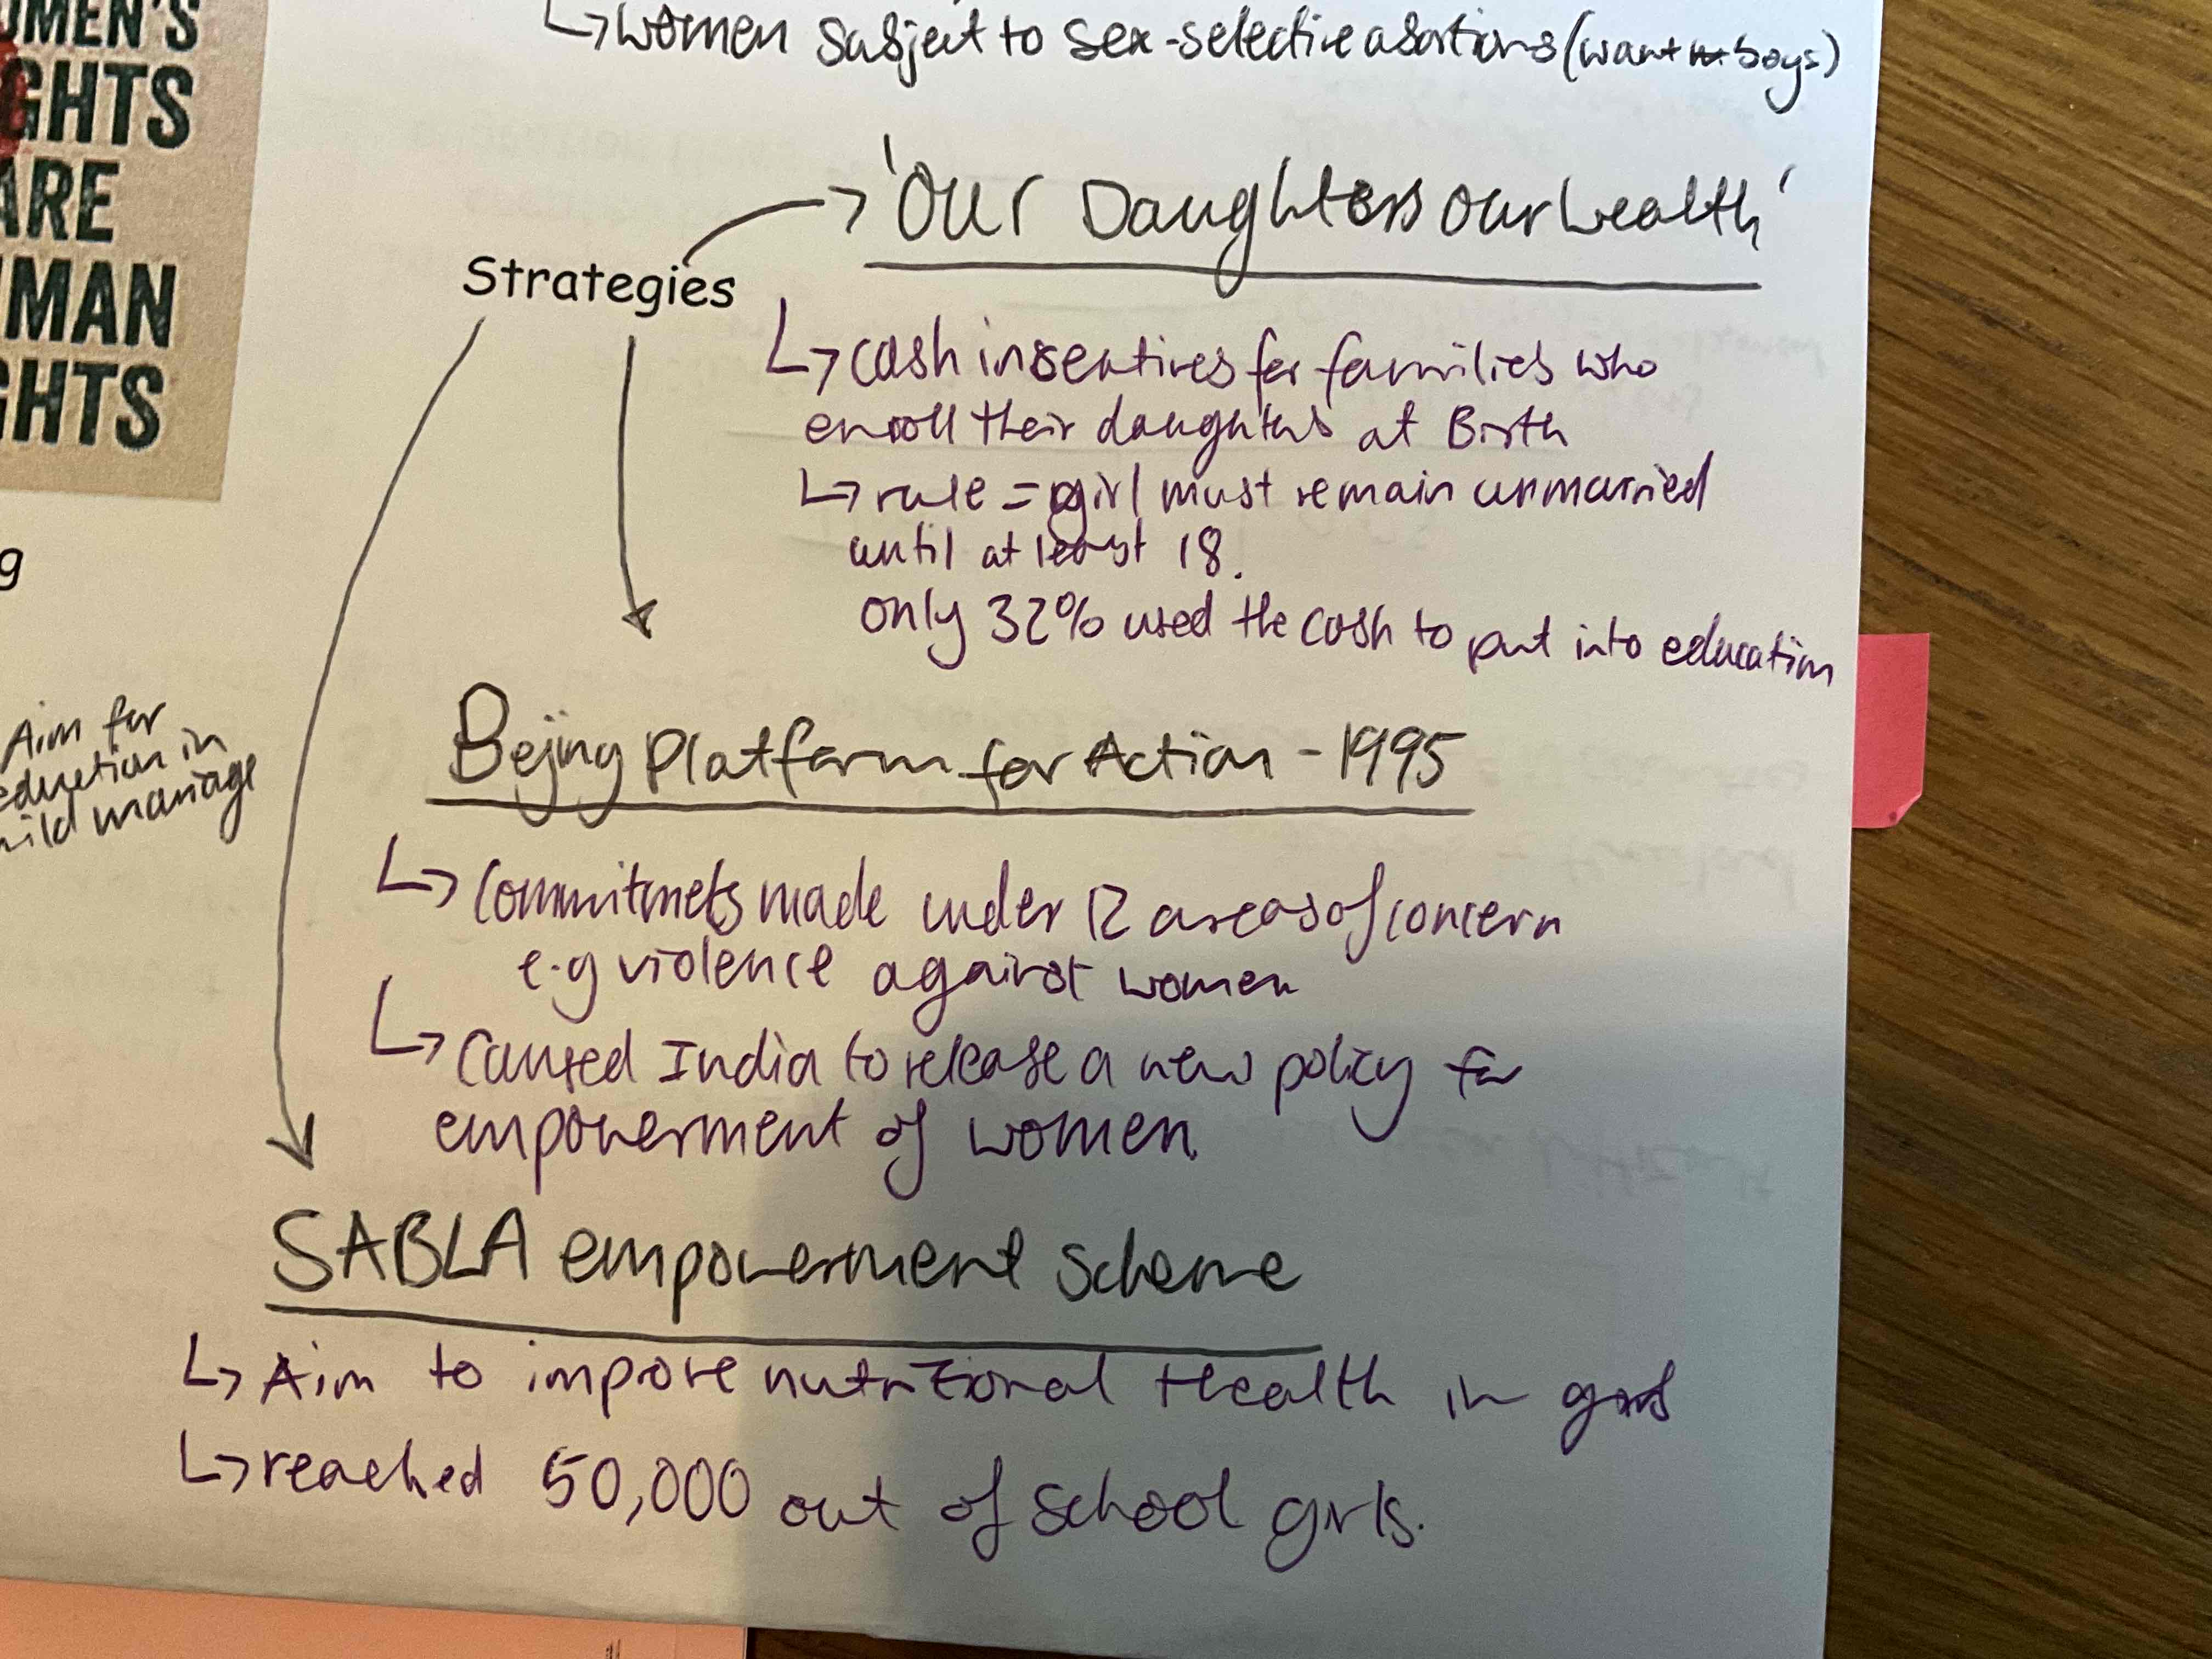 OMEN'S
GHTS
ARE
MAN
GHTS
g
Aim for
eduction in
hild marriage
↳ women subject to sex-selective abortions (want boys)
Strategies
→ 'Our Daughters our wealth'
↳ cash insentives for families who
enroll their daughters at Birth
↳ rule = girl must remain unmarried
until at least 18.
only 32% used the cash to put into education
Bejing Platform for Action - 1995
↳ Commitmets made under 12 areas of concern
e.g violence against women
↳ Caused India to release a new policy for
empowerment of women.
SABLA empowerment scheme
↳ Aim to improve nutritional Health in girls
↳ reached 50,000 out of school girls.